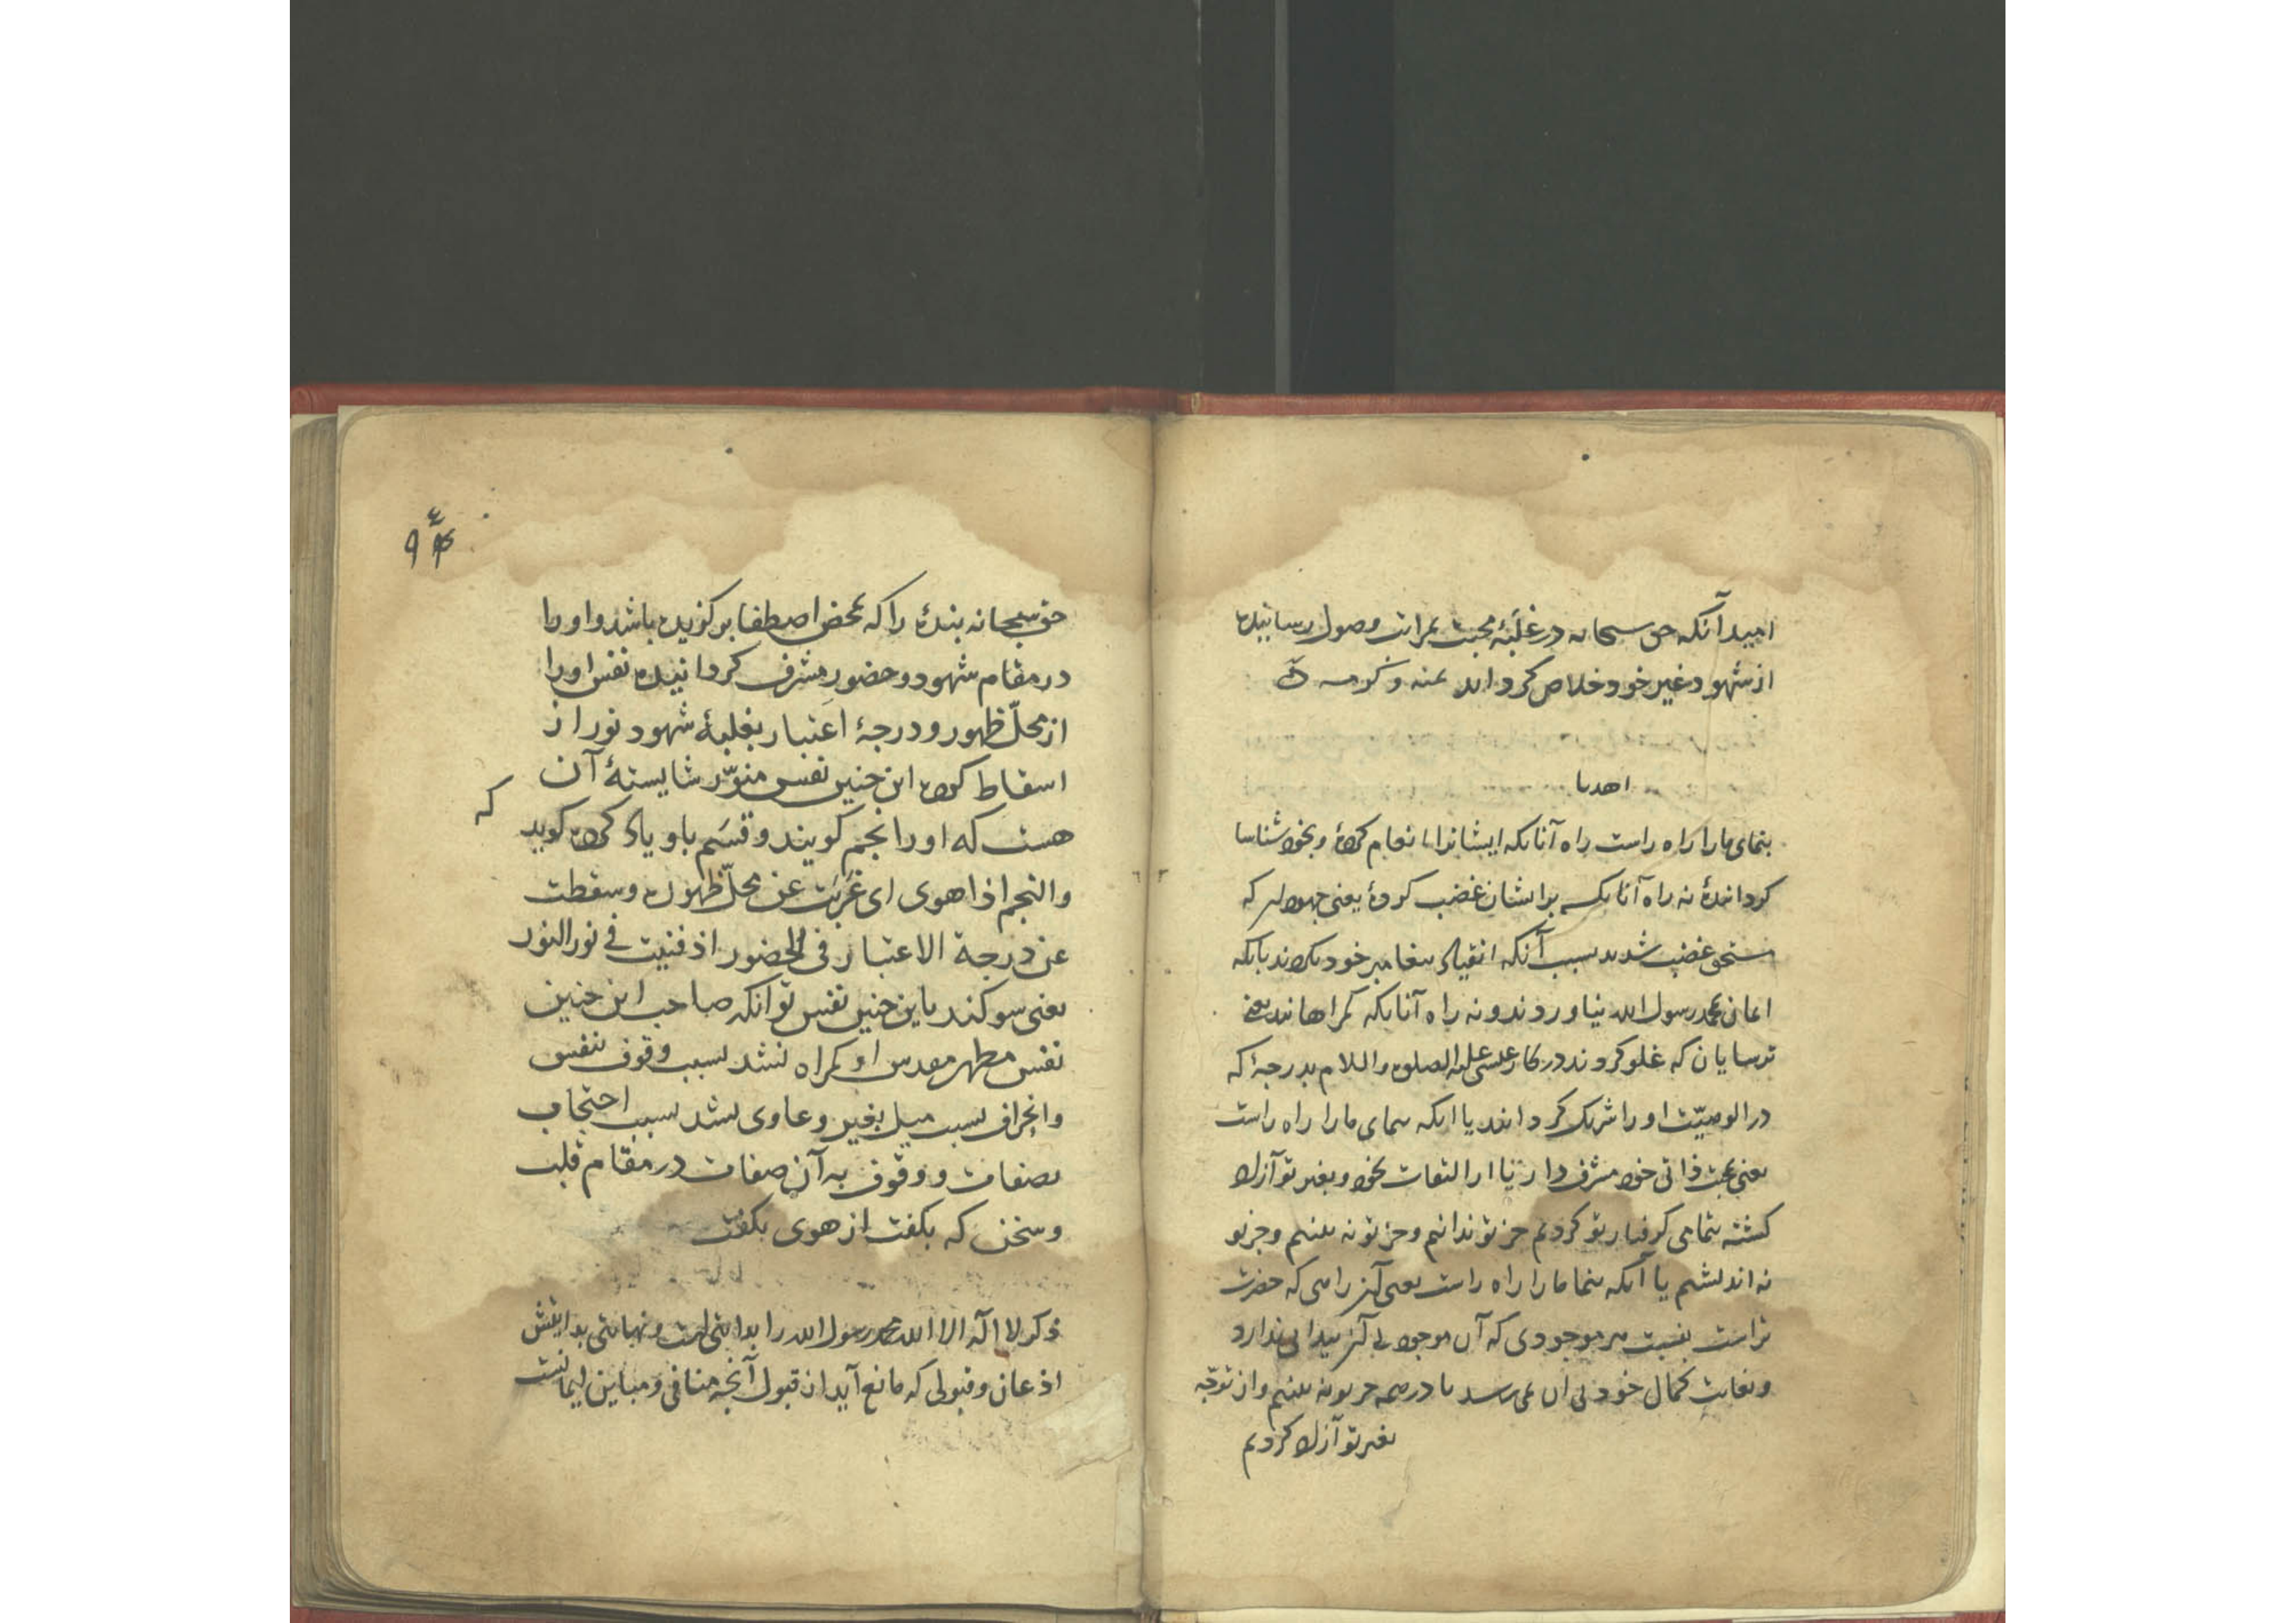 امید آنکه حق سبحانه در غلبهٔ محبت بمراتب وصول رسانیده
از شهود غیر خود خلاص کرداند بمنه و کرمه
اهدنا
بنمای مارا راه راست راه آنانکه ایشانرا انعام کردهٔ و بخود شناسا
کردانیدهٔ نه راه آنانکه برایشان غضب کردهٔ یعنی جهودان که
مستحق غضب شدند بسبب آنکه انقیاد پیغامبر خود نکردند بآنکه
ایمان بمحمد رسول الله نیاوردند و نه راه آنانکه کمراهانند یعنی
ترسایان که غلو کردند در کار عیسی علیه الصلوة والسلام بدرجهٔ که
در الوهیّت او را شریک کردانند یا آنکه بنمای مارا راه راست
یعنی بمحبت ذاتی خود مشرف دار تا از التفات بخود و بغیر تو آزاد
کشته بتمامی کرفتار تو کردیم جز تو ندانیم و جز تو نه بینیم و جز تو
نه اندیشیم یا آنکه بنما مارا راه راست یعنی آن راهی که حضرت
تراست بنسبت هر موجودی که آن موجود بی آن پیدایی ندارد
و بغایت کمال خود بی آن نمی رسد تا در همه جز تو نه بینیم و از توجّه
بغیر تو آزاد کردیم
۹۴
حق سبحانه بندهٔ را که بمحض اصطفا برکزیده باشد و اورا
در مقام شهود و حضور مشرف کردانیده نفس اورا
از محلّ ظهور و درجهٔ اعتبار بغلبهٔ شهود نور از
اسقاط کرده این چنین نفس منوّر شایستهٔ آن
هست که اورا نجم کویند و قسَم باو یاد کرده کوید که
والنجم اذا هوی ای غربت عن محلّ ظهوره وسقطت
عن درجة الاعتبار فی الحضور اذ فنیت فی نور النور
یعنی سوکند باین چنین نفس تو آنکه صاحب این چنین
نفس مطهر مقدس او کمراه نشد بسبب وقوف بنفس
وانحراف بسبب میل بغیر و غاوی نشد بسبب احتجاب
بصفات و وقوف به آن صفات در مقام قلب
و سخن که بکفت از هوی بکفت
ذکر لا اله الا الله محمد رسول الله را بدایتی است و نهایتی بدایتش
اذعان و قبولی که مانع آید از قبول آنچه منافی و مباین ایمانست